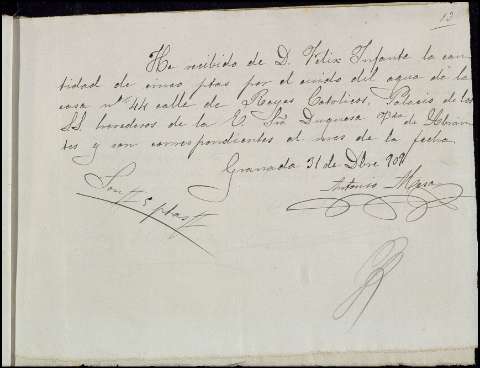 12
He recibido de D. Felix Infante la can-
tidad de cinco ptas por el cuido del agua de la
casa nº 44 calle de Reyes Catolicos, Palacio de los
SS. herederos de la E. Sra Duquesa Vda de Abran-
tes y son correspondientes al mes de la fecha.
Granada 31 de Dbre
Antonio
Son 5 ptas